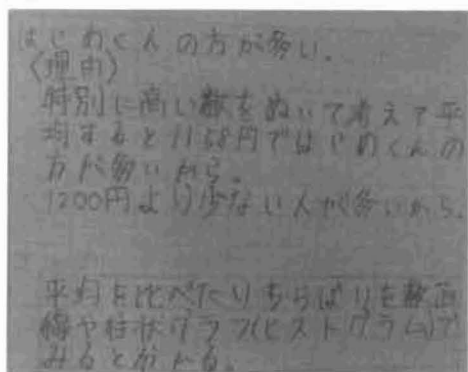 はじめくんの方が多い。
〈理由〉
特別に高い数をぬいて考えて平
均すると1158円ではじめくんの
方が多いから。
1200円より少ない人が多いから。
平均を比べたりちらばりを数直
線や柱状グラフ(ヒストグラム)で
みると分かる。